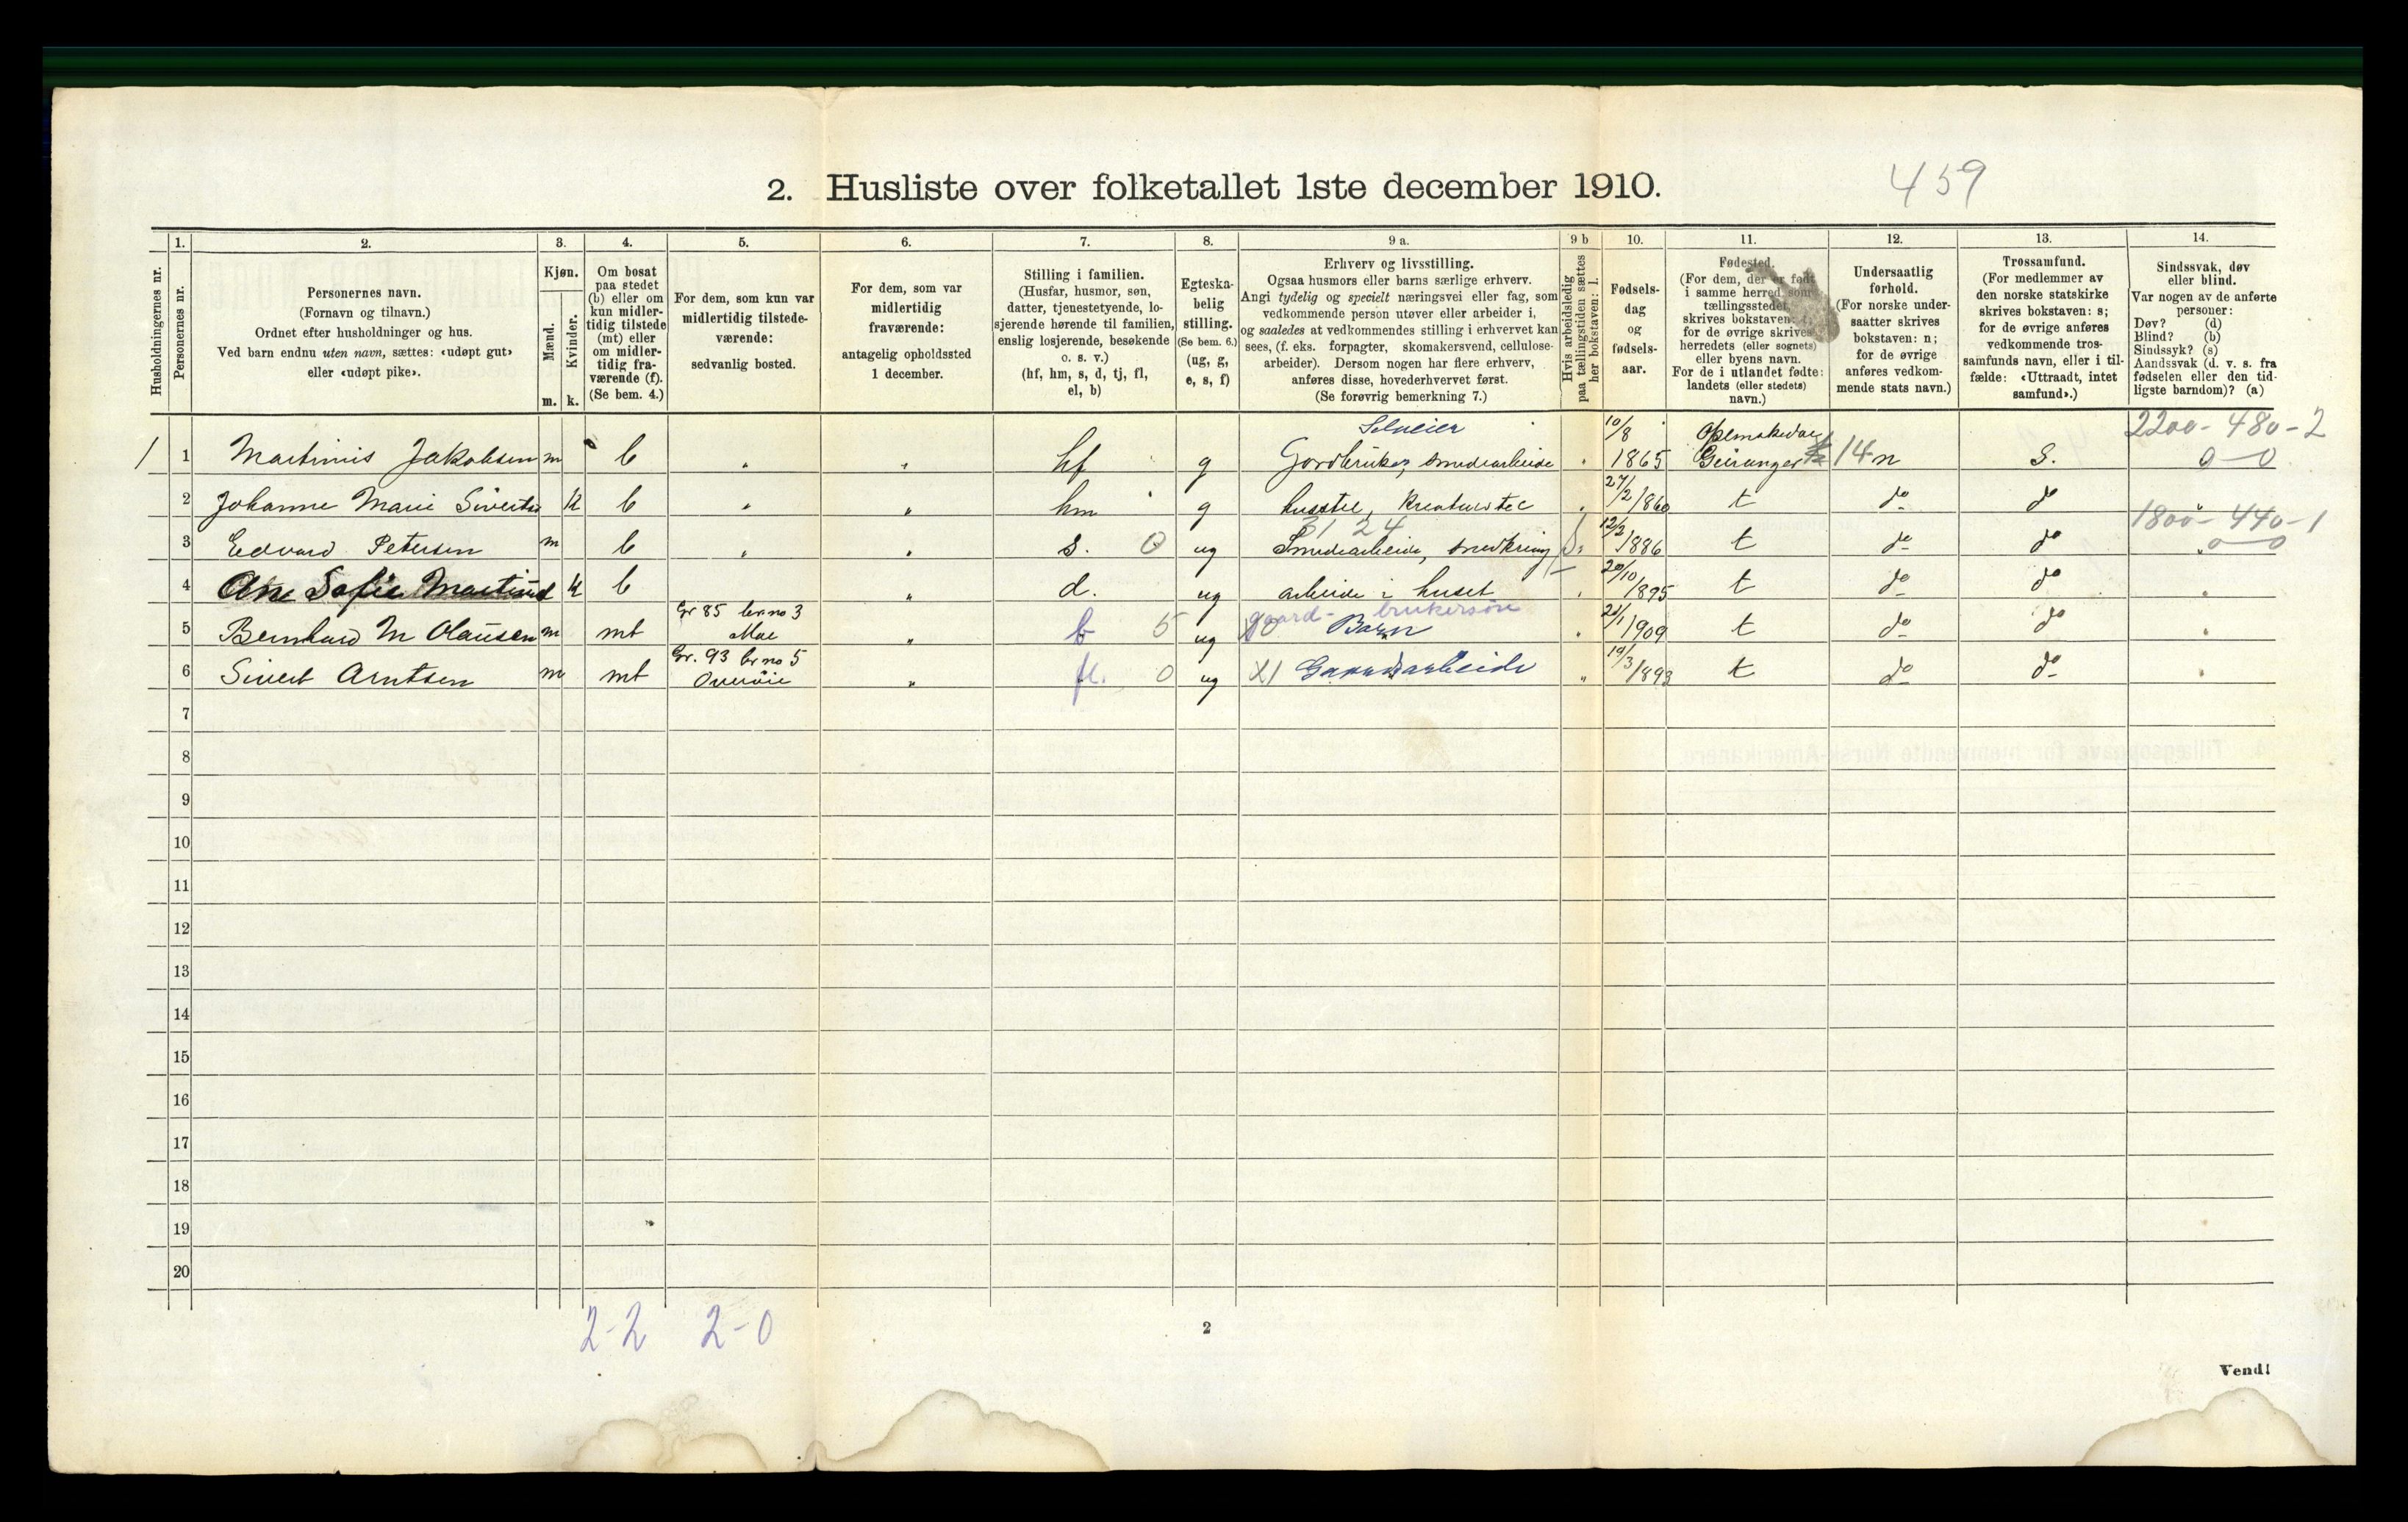 2. Husliste over folketallet 1ste december 1910.
459
Husholdningernes nr.
1.
Personernes nr.
2.
Personernes navn.
(Fornavn og tilnavn.)
Ordnet efter husholdninger og hus.
Ved barn endnu uten navn, sættes: «udøpt gut»
eller «udøpt pike».
3.
Kjøn.
Mænd.
Kvinder.
m. k.
4.
Om bosat
paa stedet
(b) eller om
kun midler-
tidig tilstede
(mt) eller
om midler-
tidig fra-
værende (f).
(Se bem. 4.)
5.
For dem, som kun var
midlertidig tilstede-
værende:
sedvanlig bosted.
6.
For dem, som var
midlertidig
fraværende:
antagelig opholdssted
1 december.
7.
Stilling i familien.
(Husfar, husmor, søn,
datter, tjenestetyende, lo-
sjerende hørende til familien,
enslig losjerende, besøkende
o. s. v.)
(hf, hm, s, d, tj, fl,
el, b)
8.
Egteska-
belig
stilling.
(Se bem. 6.)
(ug, g,
e, s, f)
9 a.
Erhverv og livsstilling.
Ogsaa husmors eller barns særlige erhverv.
Angi tydelig og specielt næringsvei eller fag, som
vedkommende person utøver eller arbeider i,
og saaledes at vedkommendes stilling i erhvervet kan
sees, (f. eks. forpagter, skomakersvend, cellulose-
arbeider). Dersom nogen har flere erhverv,
anføres disse, hovederhvervet først.
(Se forøvrig bemerkning 7.)
9 b
Hvis arbeidsledig
paa tællingstiden sættes
her bokstaven: l.
10.
Fødsels-
dag
og
fødsels-
aar.
11.
Fødested.
(For dem, der er født
i samme herred som
tællingsstedet,
skrives bokstaven: t;
for de øvrige skrives
herredets (eller sognets)
eller byens navn.
For de i utlandet fødte:
landets (eller stedets)
navn.)
12.
Undersaatlig
forhold.
(For norske under-
saatter skrives
bokstaven: n;
for de øvrige
anføres vedkom-
mende stats navn.)
13.
Trossamfund.
(For medlemmer av
den norske statskirke
skrives bokstaven: s;
for de øvrige anføres
vedkommende tros-
samfunds navn, eller i til-
fælde: «Uttraadt, intet
samfund».)
14.
Sindssvak, døv
eller blind.
Var nogen av de anførte
personer:
Døv? (d)
Blind? (b)
Sindssyk? (s)
Aandssvak (d. v. s. fra
fødselen eller den tid-
ligste barndom)? (a)
Selveier 10/8 2200-480-2
1 1 Martinus Jakobsen m b " " hf g Gordbruker, smedarbeide " 1865 Geiranger 14 n S. 0-0
2 Johanne Marie Sivertsd k b " " hm g husstel, kreaturstel " 27/2 1860 t do do "
31 24 1800-440-1
3 Edvard Petersen m b " " s. 0 ug Smedarbeide, 12/2 1886 t do do " 0-0
4 Ane Sofie Martinsd k b " d. ug arbeide i huset " 20/10 1895 t do do "
Gr 85 br no 3 gaard-brukersøn
5 Bernhard M Olausen m mt Moe " b 5 ug Barn " 21/1 1909 t do do "
Gr. 93 br no 5
6 Sivert Arntsen m mt Overøie " fl. 0 ug X1 Gaardsarbeide " 19/3 1893 t do do "
7
8
9
10
11
12
13
14
15
16
17
18
19
20
2-2 2-0
2
Vend!